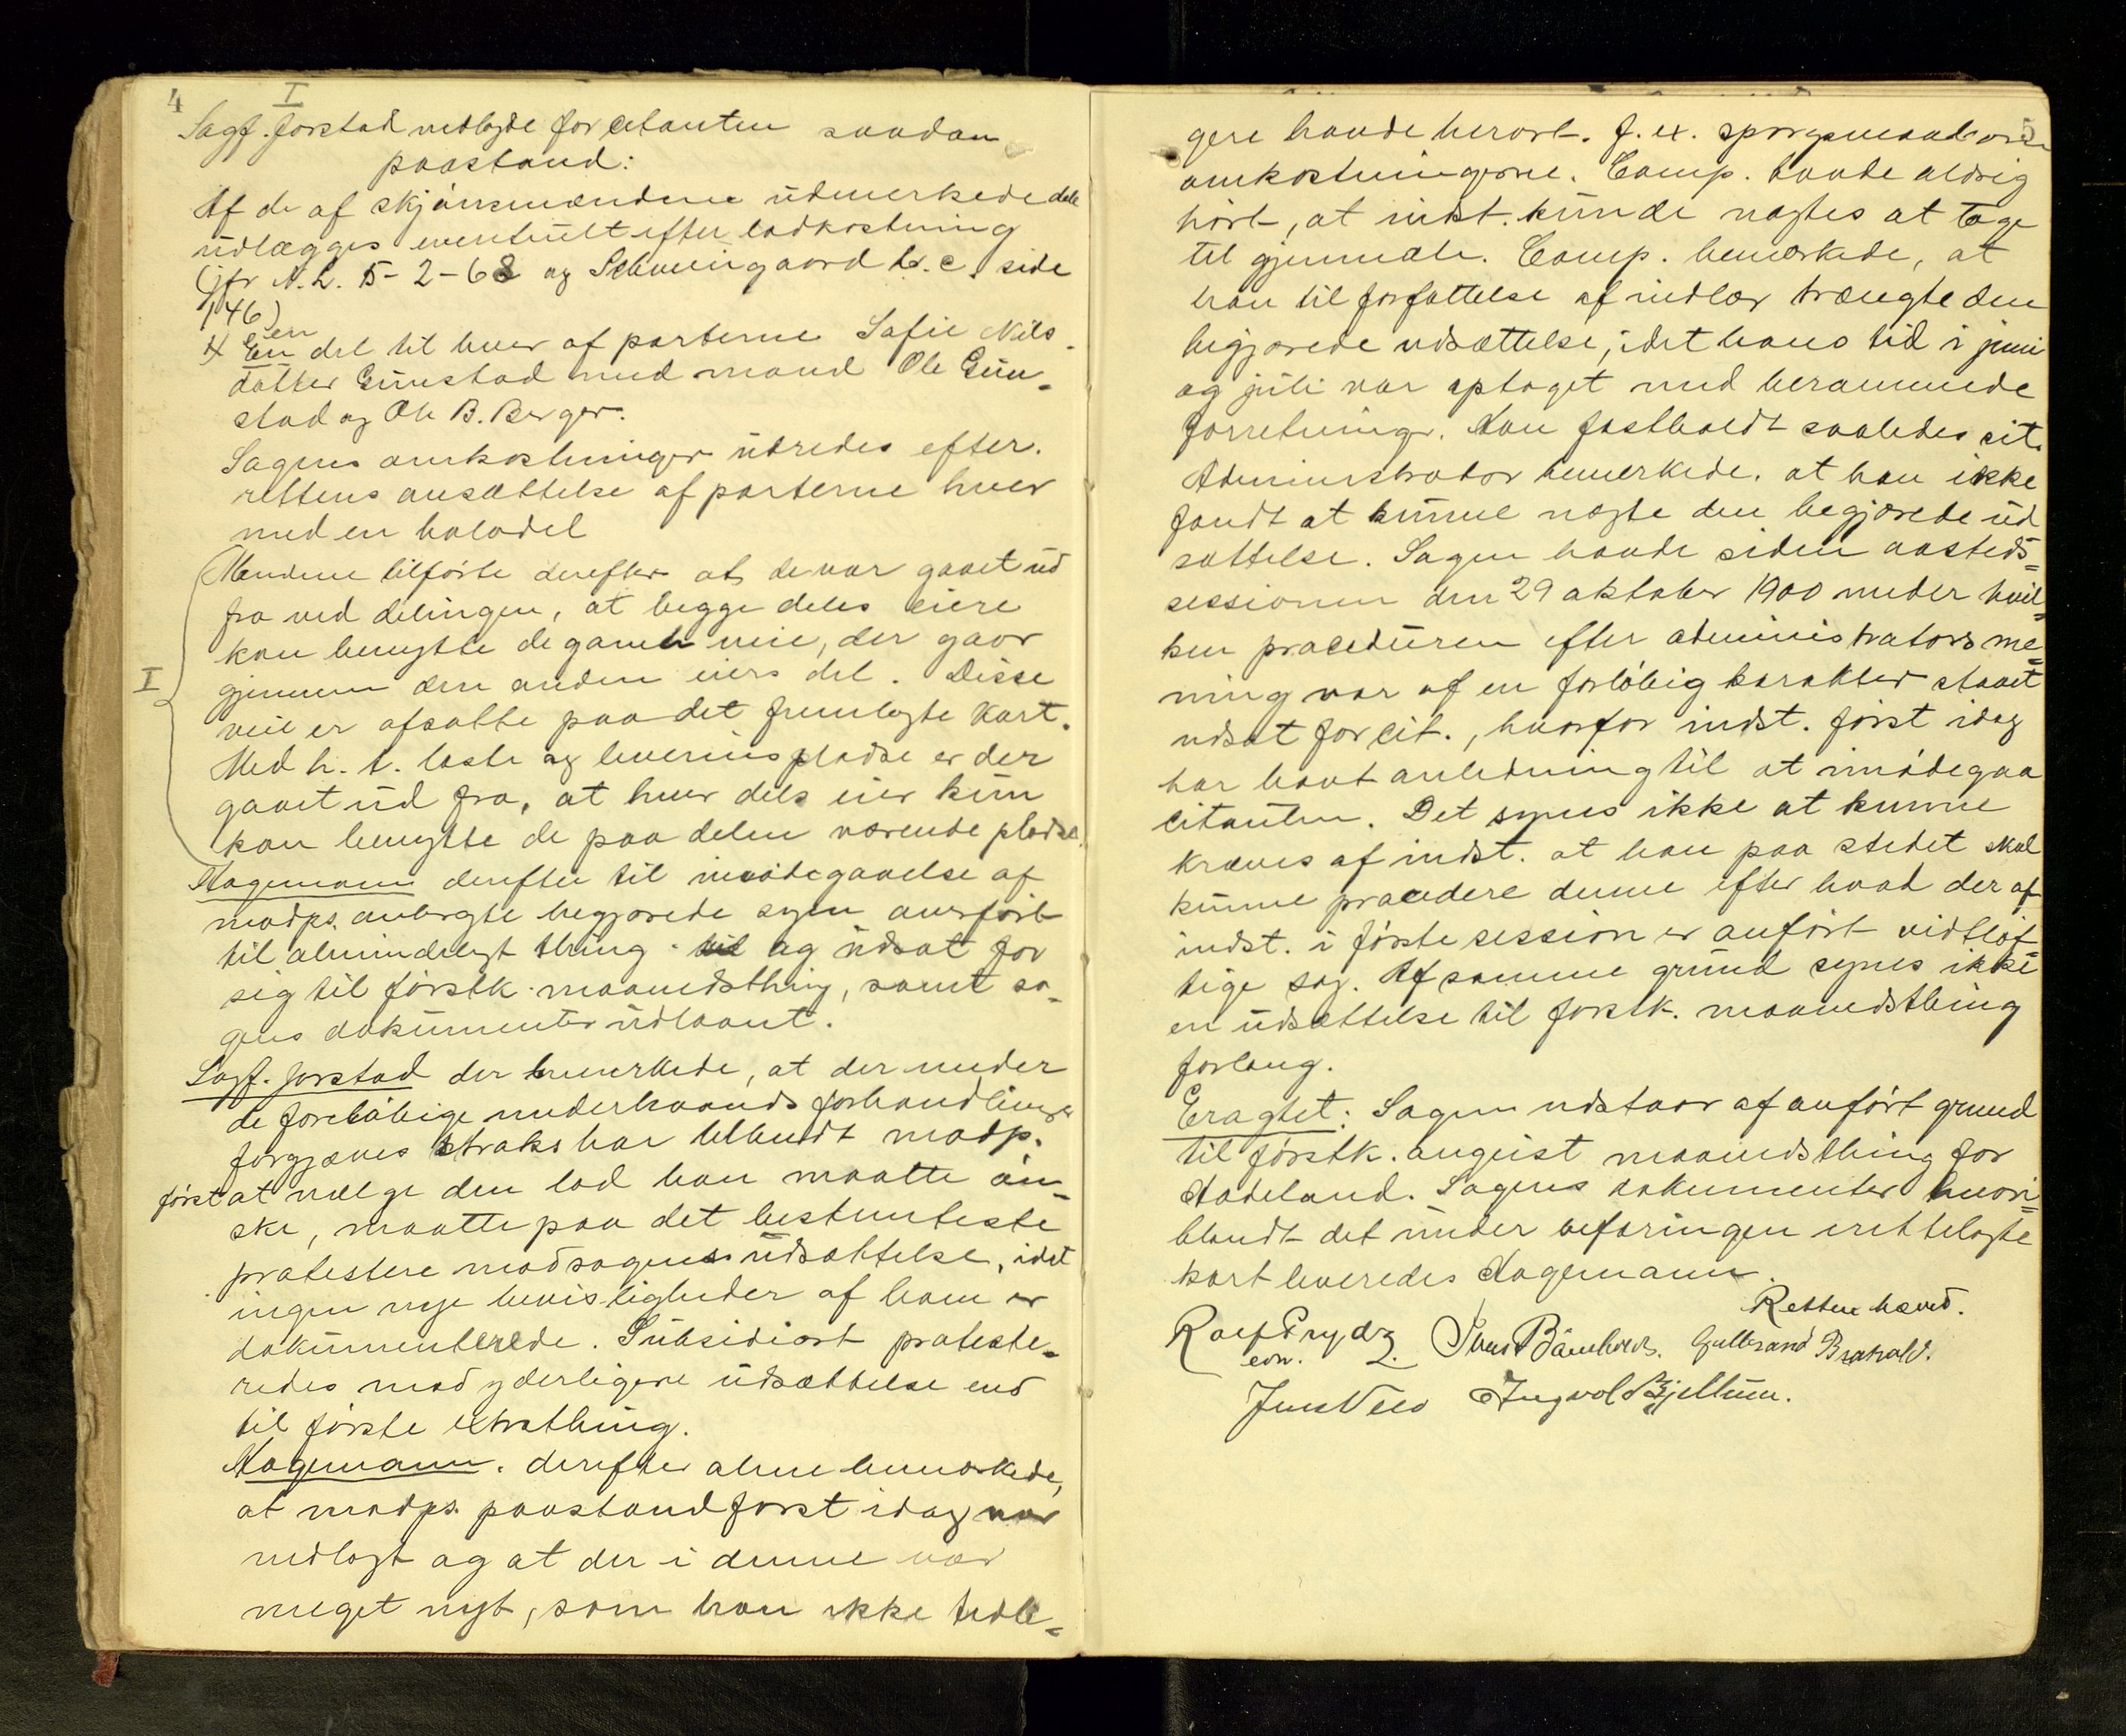 4
I
Sagf. Jorstad nedlagde for citanten saadan
paastand:
Af de af skjønsmændene udmerkede dele
udlægges eventuelt efter lodkastning
(jfr N. L. 5-2-68 og Schweingaard l. c. side
146)
en
# En del til hver af parterne Safie Nils-
datter Gunstad med mand Ole Gun-
stad og Ole B. Berger.
Sagens omkostninger udredes efter.
rettens ansættelse af parterne hver
med en halvdel
Mændene tilførte derefter at de var gaaet ud
fra ved delingen, at begge deles eiere
kan benytte de gamle veie, der gaar
I
gjennem den anden eiers del. Disse
veie er afsatte paa det fremlagte kart.
Med h. t. laste og leverinspladse er der
gaaet ud fra, at hver dels eier kun
kan benytte de paa delen værende pladse.
Hagemann derefter til imødegaaelse af
modps. anbragte begjærede sagen overført
til almindeligt thing og udsat for
sig til førstk. maanedsthing, samt sa-
gens dokumenter udlaant.
Sagf. Jorstad der bemerkede, at der under
de foreløbige underhaands forhandlinger
forgjæves straks har tilbudt modp.
først at vælge den lod han maatte øn-
ske, maatte paa det bestemteste
protestere mod sagens udsættelse, idet
ingen nye bevisligheder af ham er
dokumenterede. Subsidiært proteste-
redes mod yderligere udsættelse end
til første extrathing.
Hagemann. derefter alene bemærkede,
at modps. paastand først idag var
nedlagt og at der i denne var
meget nyt, som han ikke tidli-
5
gere havde hørt. f. ex. spørgsmaalet om
omkostningerne. Comp. havde aldrig
hørt, at indst. kunde nægtes at tage
til gjenmæle. Comp. bemærkede, at
han til forfattelse af indlæg trængte den
begjærede udsættelse, idet hans tid i juni
og juli var optaget med berammede
forretninger. Han fastholdt saaledes sit.
Administrator bemerkede. at han ikke
fandt at kunne nægte den begjærede ud
sættelse. Sagen havde siden aasteds-
sessionen den 29 oktober 1900 under hvil-
ken proceduren efter administrators me-
ning var af en forløbig karakter staaet
udsat for cit., hvorfor indst. først idag
har havt anledning til at imødegaa
citanten. Det synes ikke at kunne
kræves af indst. at han paa stedet skal
kunne procedere denne efter hvad der af
indst. i første session er anført vidtløf-
tige sag. Af samme grund synes ikke
en udsættelse til førstk. maanedsthing
forlang.
Eragtet: Sagen udstaar af anført grund
til førstk. august maanedsthing for
Hadeland. Sagens dokumenter hvori-
blandt det under befaringen irettelagte
kart leveredes Hagemann.
Retten hævet.
Rolf Prydz Gulbrand Brahold.
con.
Jens Ingvol Bjellum.